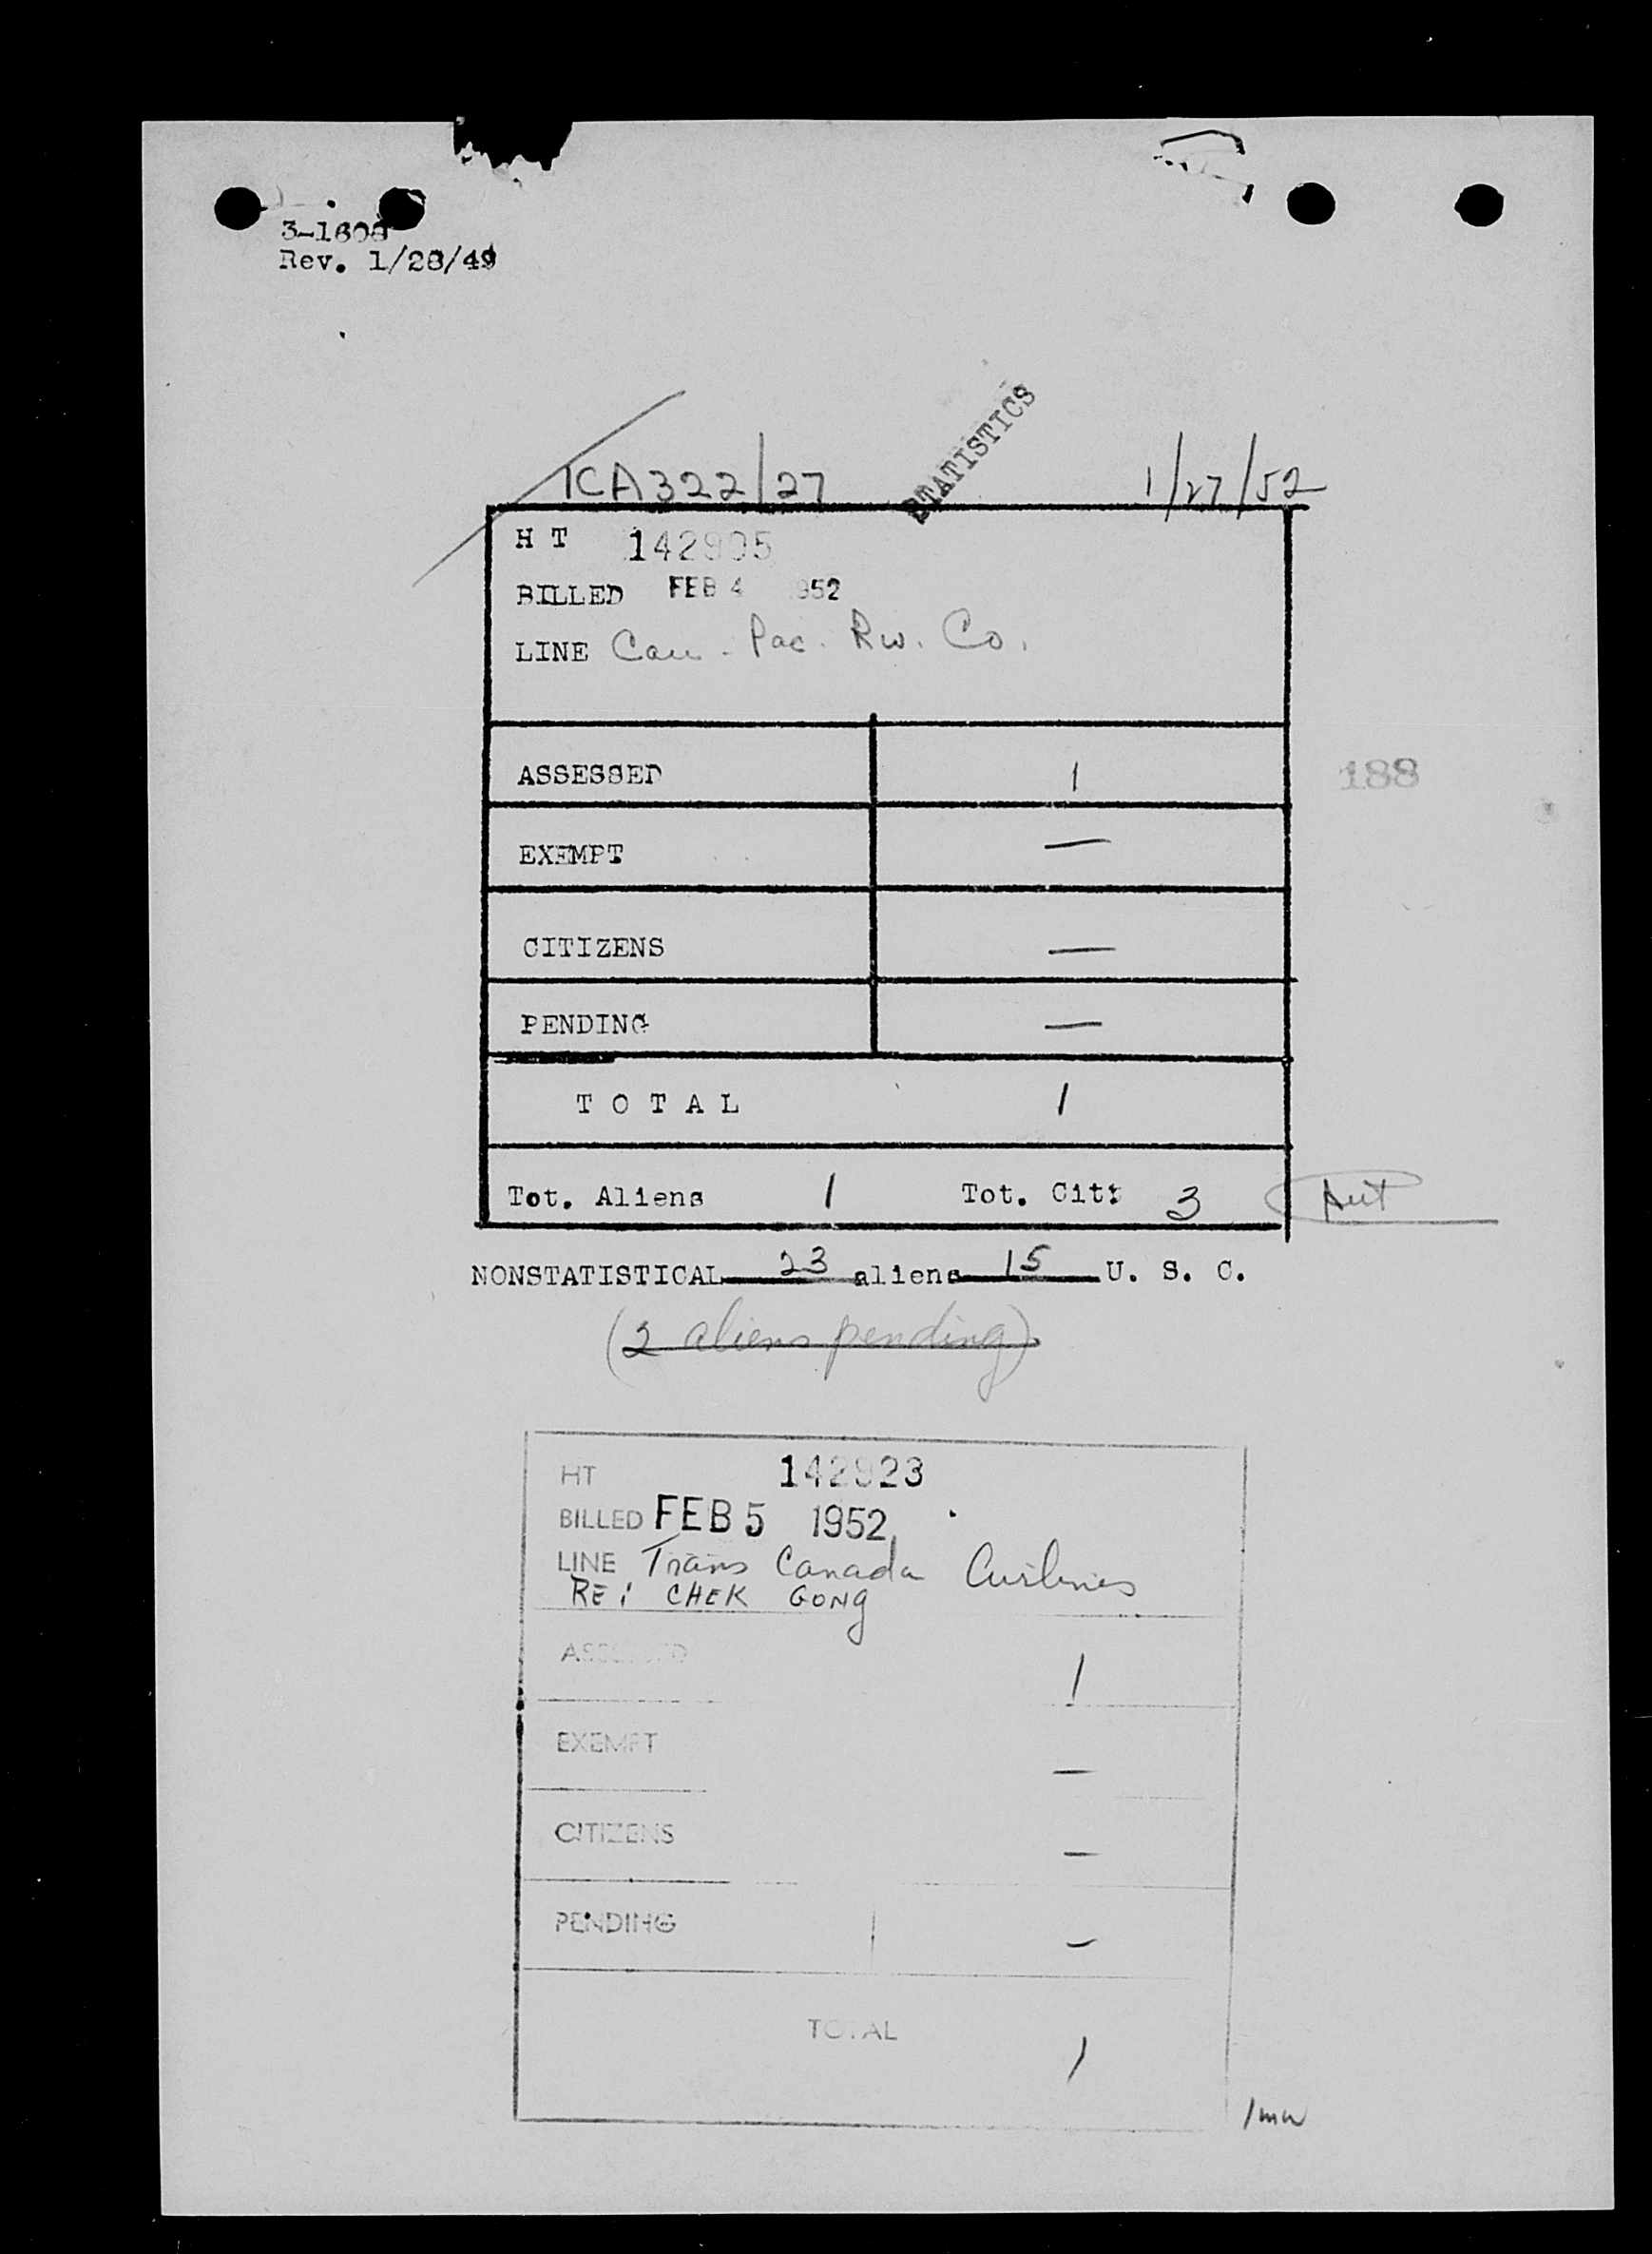 3-1608
Rev. 1/28/49
STATISTICS
TCA 322/27 1/27/52
H T 142905
BILLED FEB 4 1952
LINE Can. Pac. Rw. Co.
ASSESSED 1
188
EXEMPT —
CITIZENS —
PENDING —
T O T A L 1
Tot. Aliens 1 Tot. Cit: 3
NONSTATISTICAL 23 aliens 15 U. S. C.
(2 aliens pending)
HT 142923
BILLED FEB 5 1952
LINE Trans Canada Airlines
RE: CHEK GONG
ASSESSED 1
EXEMPT —
CITIZENS —
PENDING —
TOTAL 1